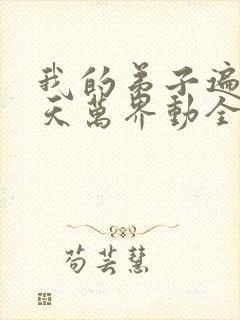 我的弟子遍
天萬界動全
苟芸慧